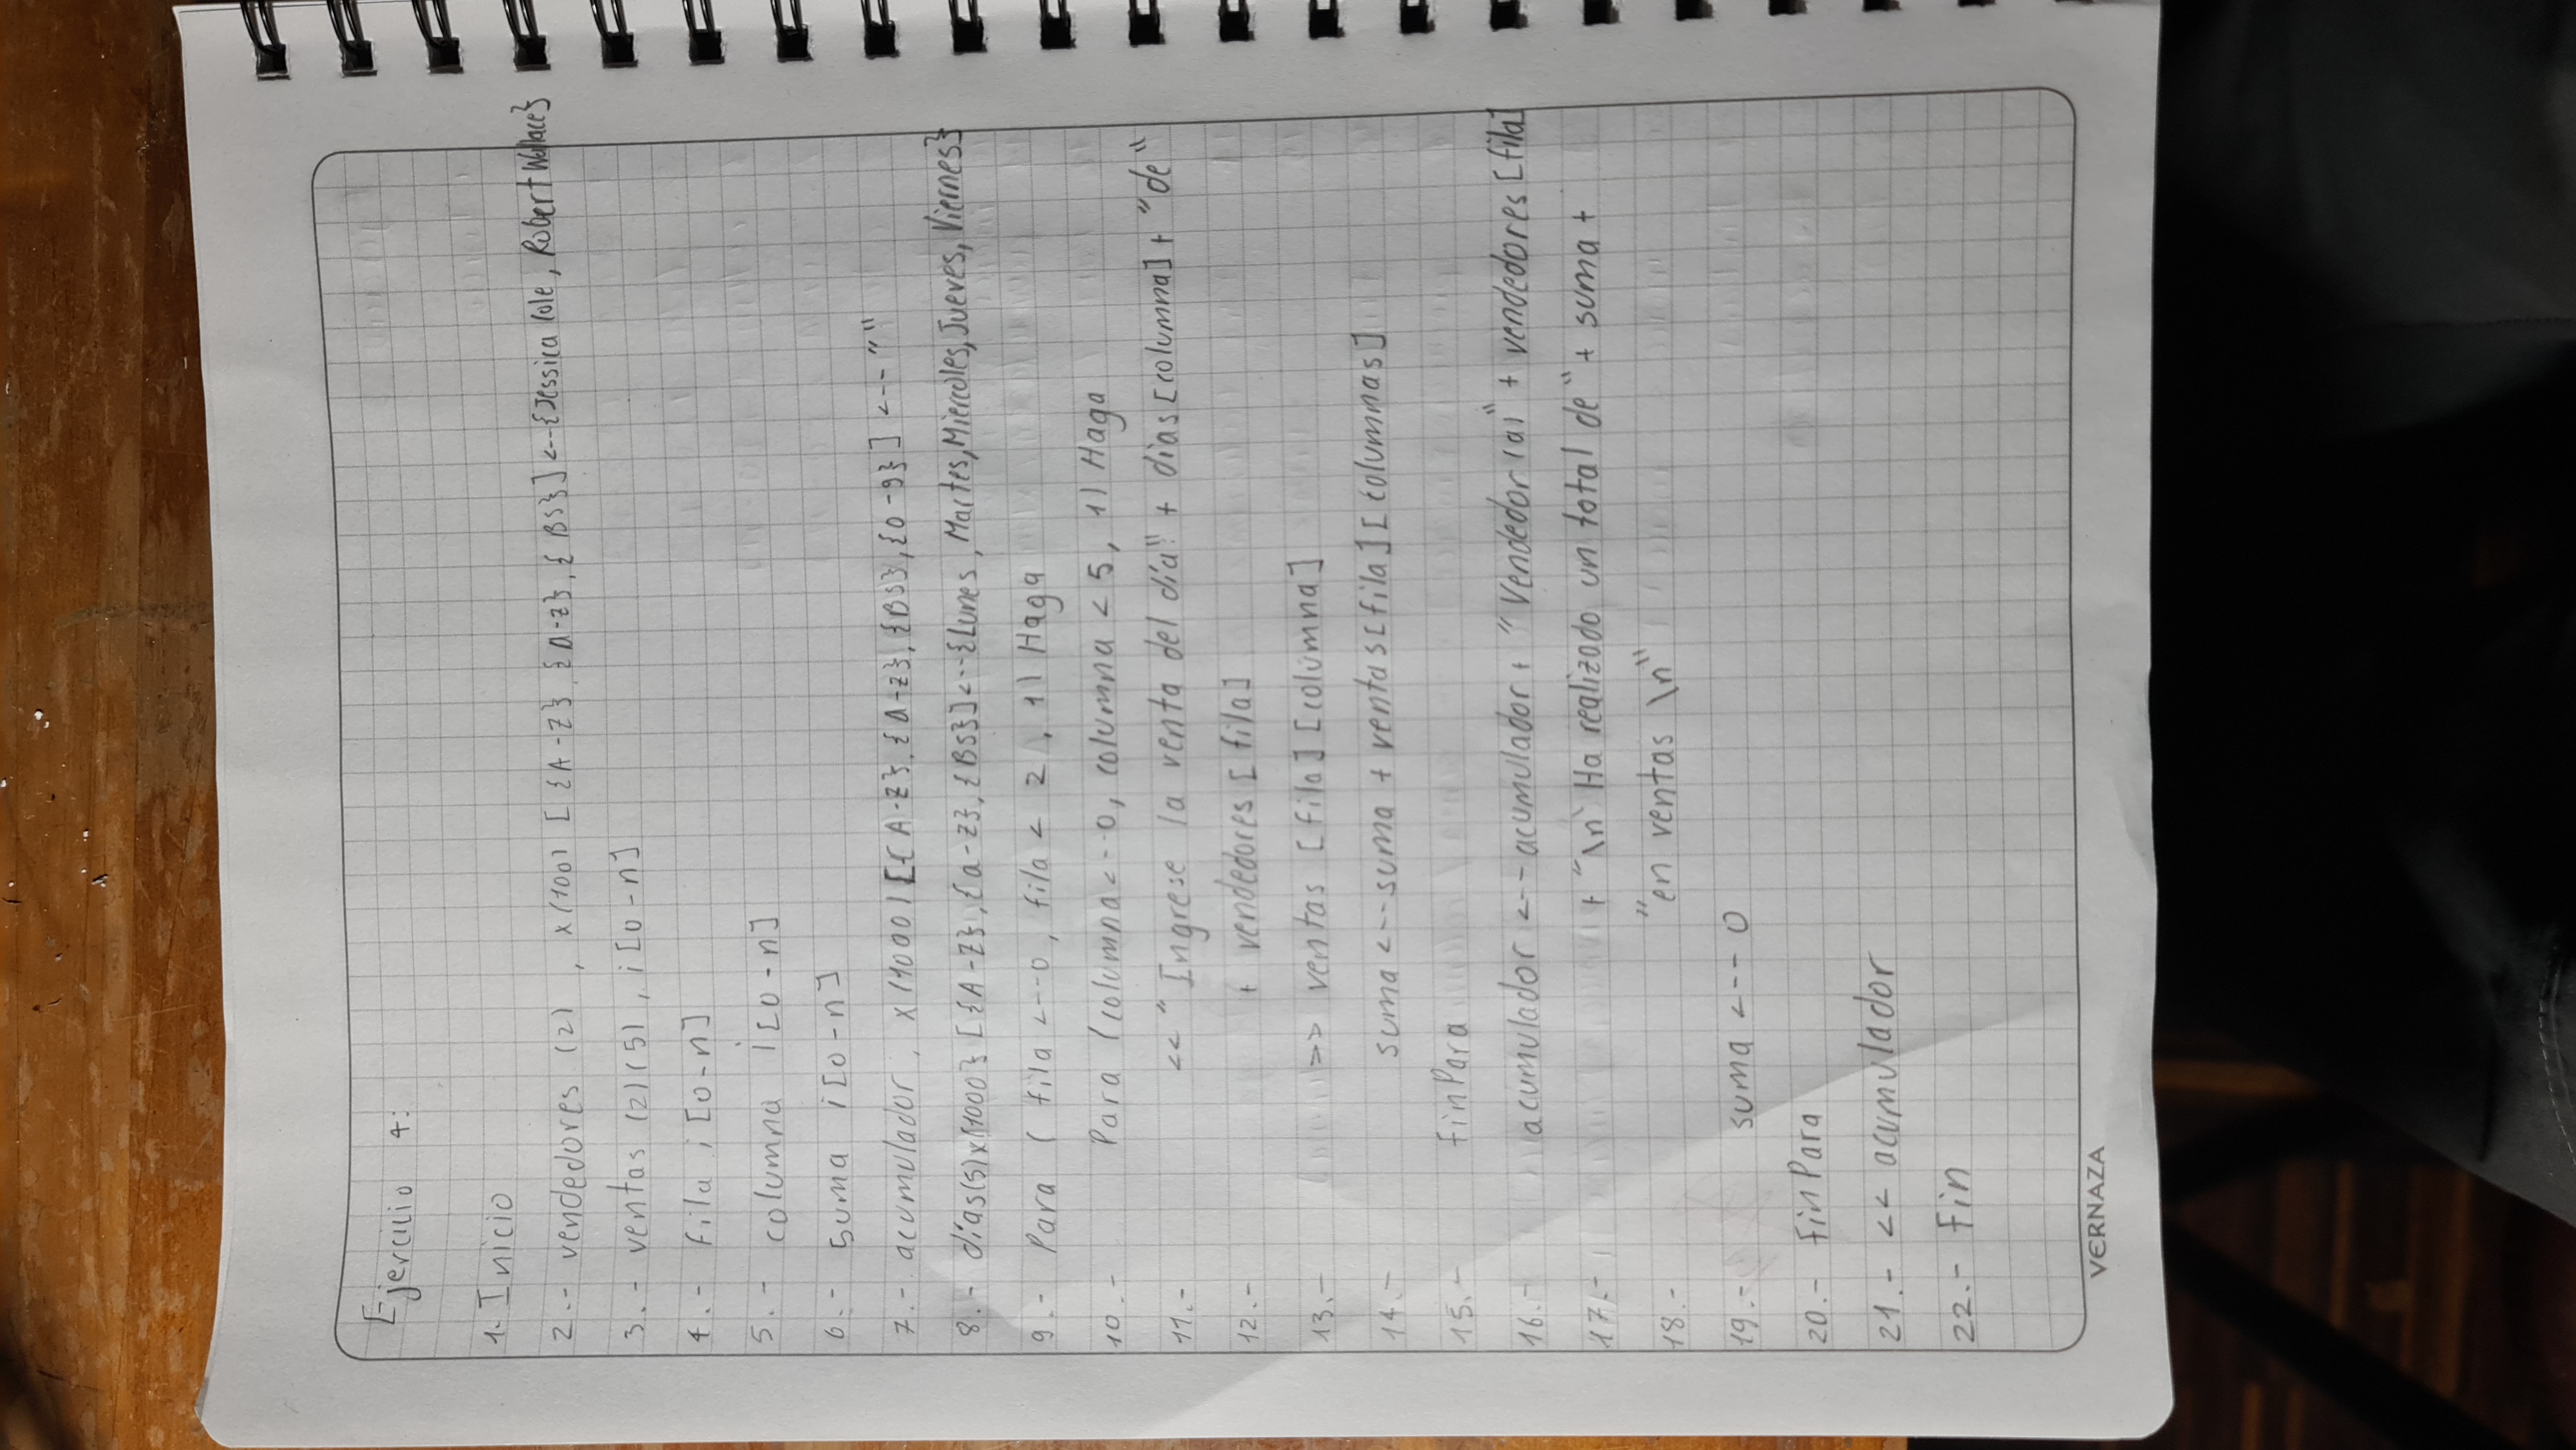 Ejercicio 4:
1- Inicio
2.- vendedores (2) , x(100) [ {A-Z}, {a-z}, { BS}] <--{Jessica Cole, Robert Wallace}
3.- ventas (2)(5), i[0-n]
4.- fila i[0-n]
5.- columna i[0-n]
6.- suma i[0-n]
7.- acumulador, x(1000) [{A-Z}, {a-z}, {BS}, {0-9}] <-- ""
8.- días(5)x(1000} [{A-Z}, {a-z}, {BS}] <--{Lunes, Martes, Miercoles, Jueves, Viernes}
9.- Para ( fila <--0, fila < 2, 1) Haga
10.- Para (columna<--0, columna < 5, 1) Haga
11.- << "Ingrese la venta del día" + dias[columna] + "de"
12.- + vendedores [fila]
13.- >> ventas [fila] [columna]
14.- suma <-- suma + ventas[fila][columnas]
15.- finPara
16.- acumulador <-- acumulador + "Vendedor(a)" + vendedores [fila]
17.- + "\n Ha realizado un total de" + suma +
18.- "en ventas \n"
19.- suma <-- 0
20.- finPara
21.- << acumulador
22.- fin
VERNAZA